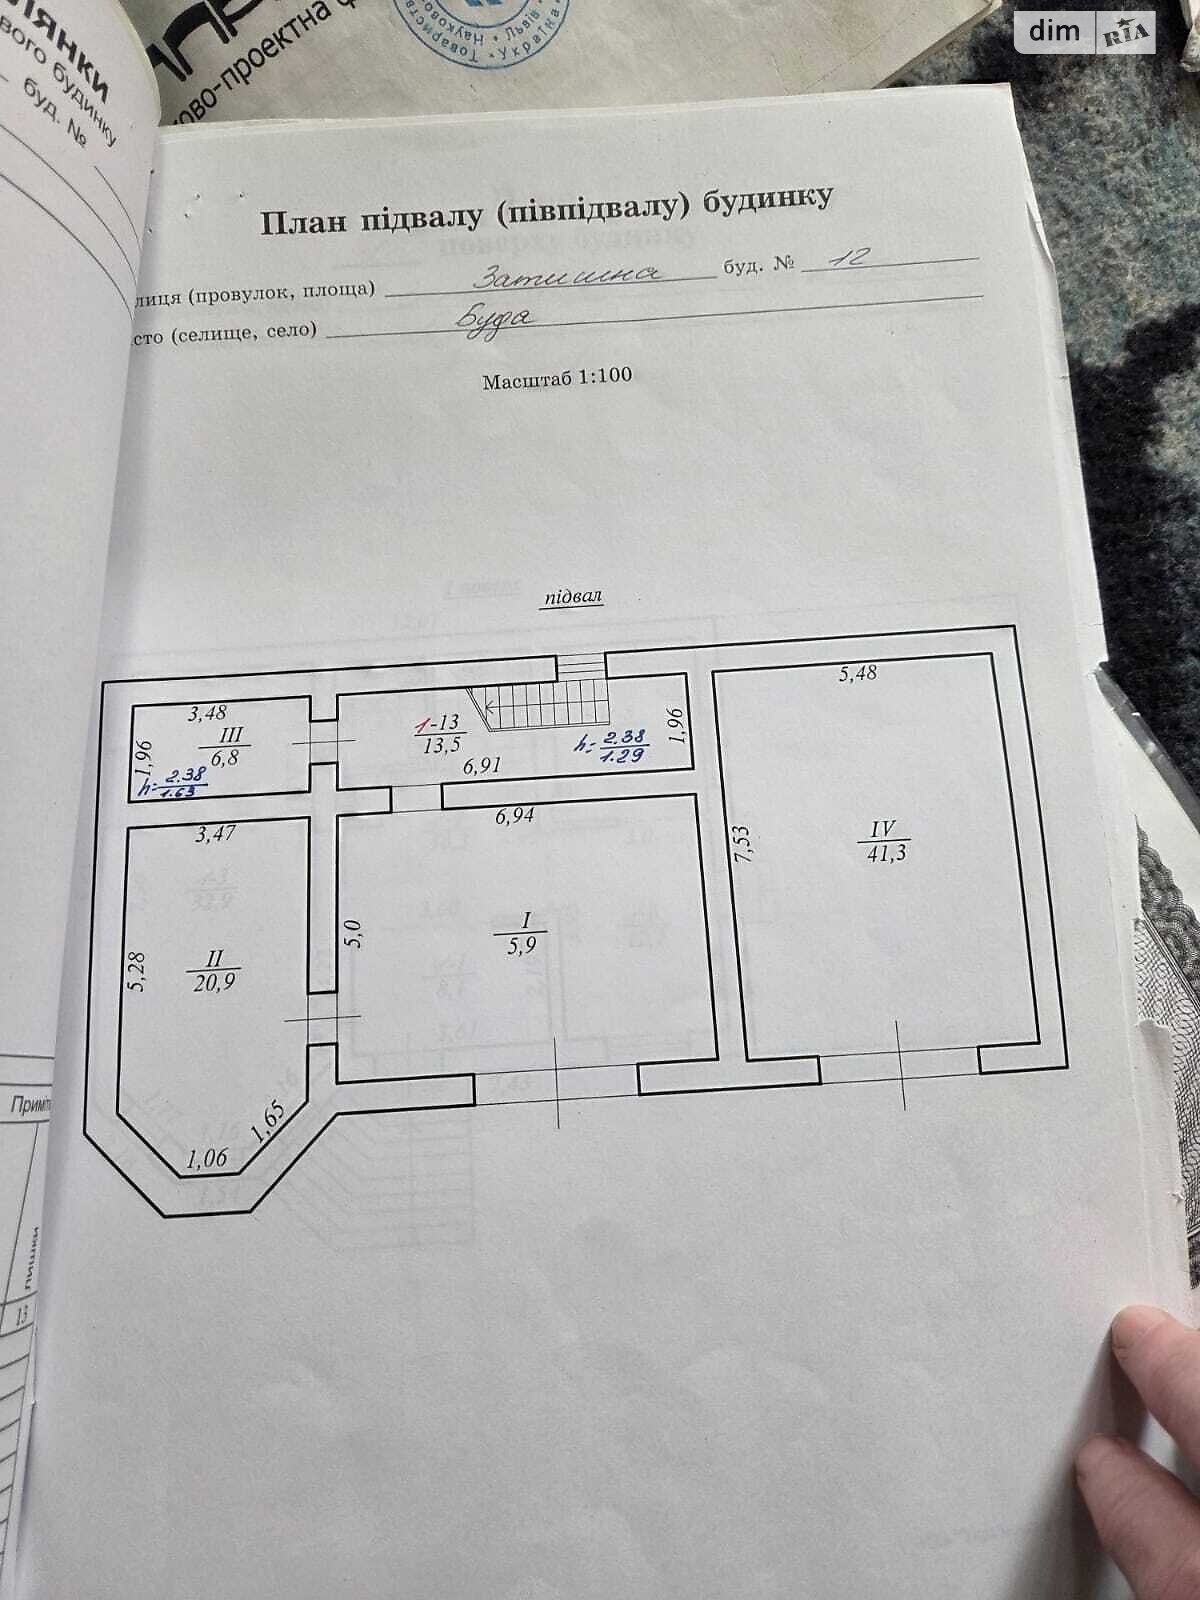 dim RIA
ЛЯНКИ
вого будинку
буд. №
ково-проектна ф
Товариств
Науково
Львів
Україна
План підвалу (півпідвалу) будинку
лиця (провулок, площа) Затишна буд. № 12
сто (селище, село) Буда
Масштаб 1:100
підвал
3,48
III
6,8
1,96
h=2.38
1.63
1-13
13,5
6,91
h=2.38
1.29
1,96
5,48
3,47
6,94
7,53
IV
41,3
5,28
II
20,9
5,0
I
5,9
1,65
1,06
Приміт
13